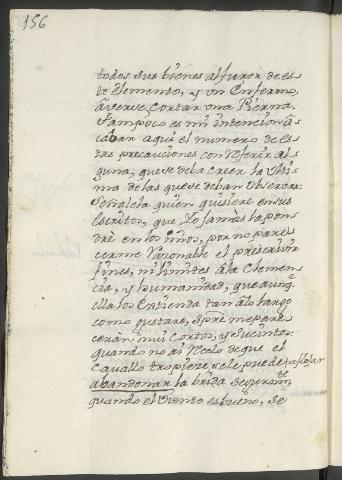 156
todos sus bienes al furor de es
te elemento, y un Enfermo,
â verse Cortar una Pierna.
Tampoco es mi intencion â
cabar aqui el numero de es
tas precauciones con referir al
guna, que se deba creer la Ulti
ma de las que se deban Observar:
Señalela quien quisiere en sus
Escritos, que Yo jamàs la pon
drè en los mios, por no pare
cerme razonable el prescrivir
fines, ni limites â la Clemen
cia, y humanidad, que aunq.
ella los Entienda tan â lo largo
como gustare, Spre me pare
ceràn mui Cortos, y Sucintos:
quando no ai recelo de que el
Cavallo tropieze, se le puede aflojar
abandonar la brida Seguram.te
quando el Viento es bueno, Se